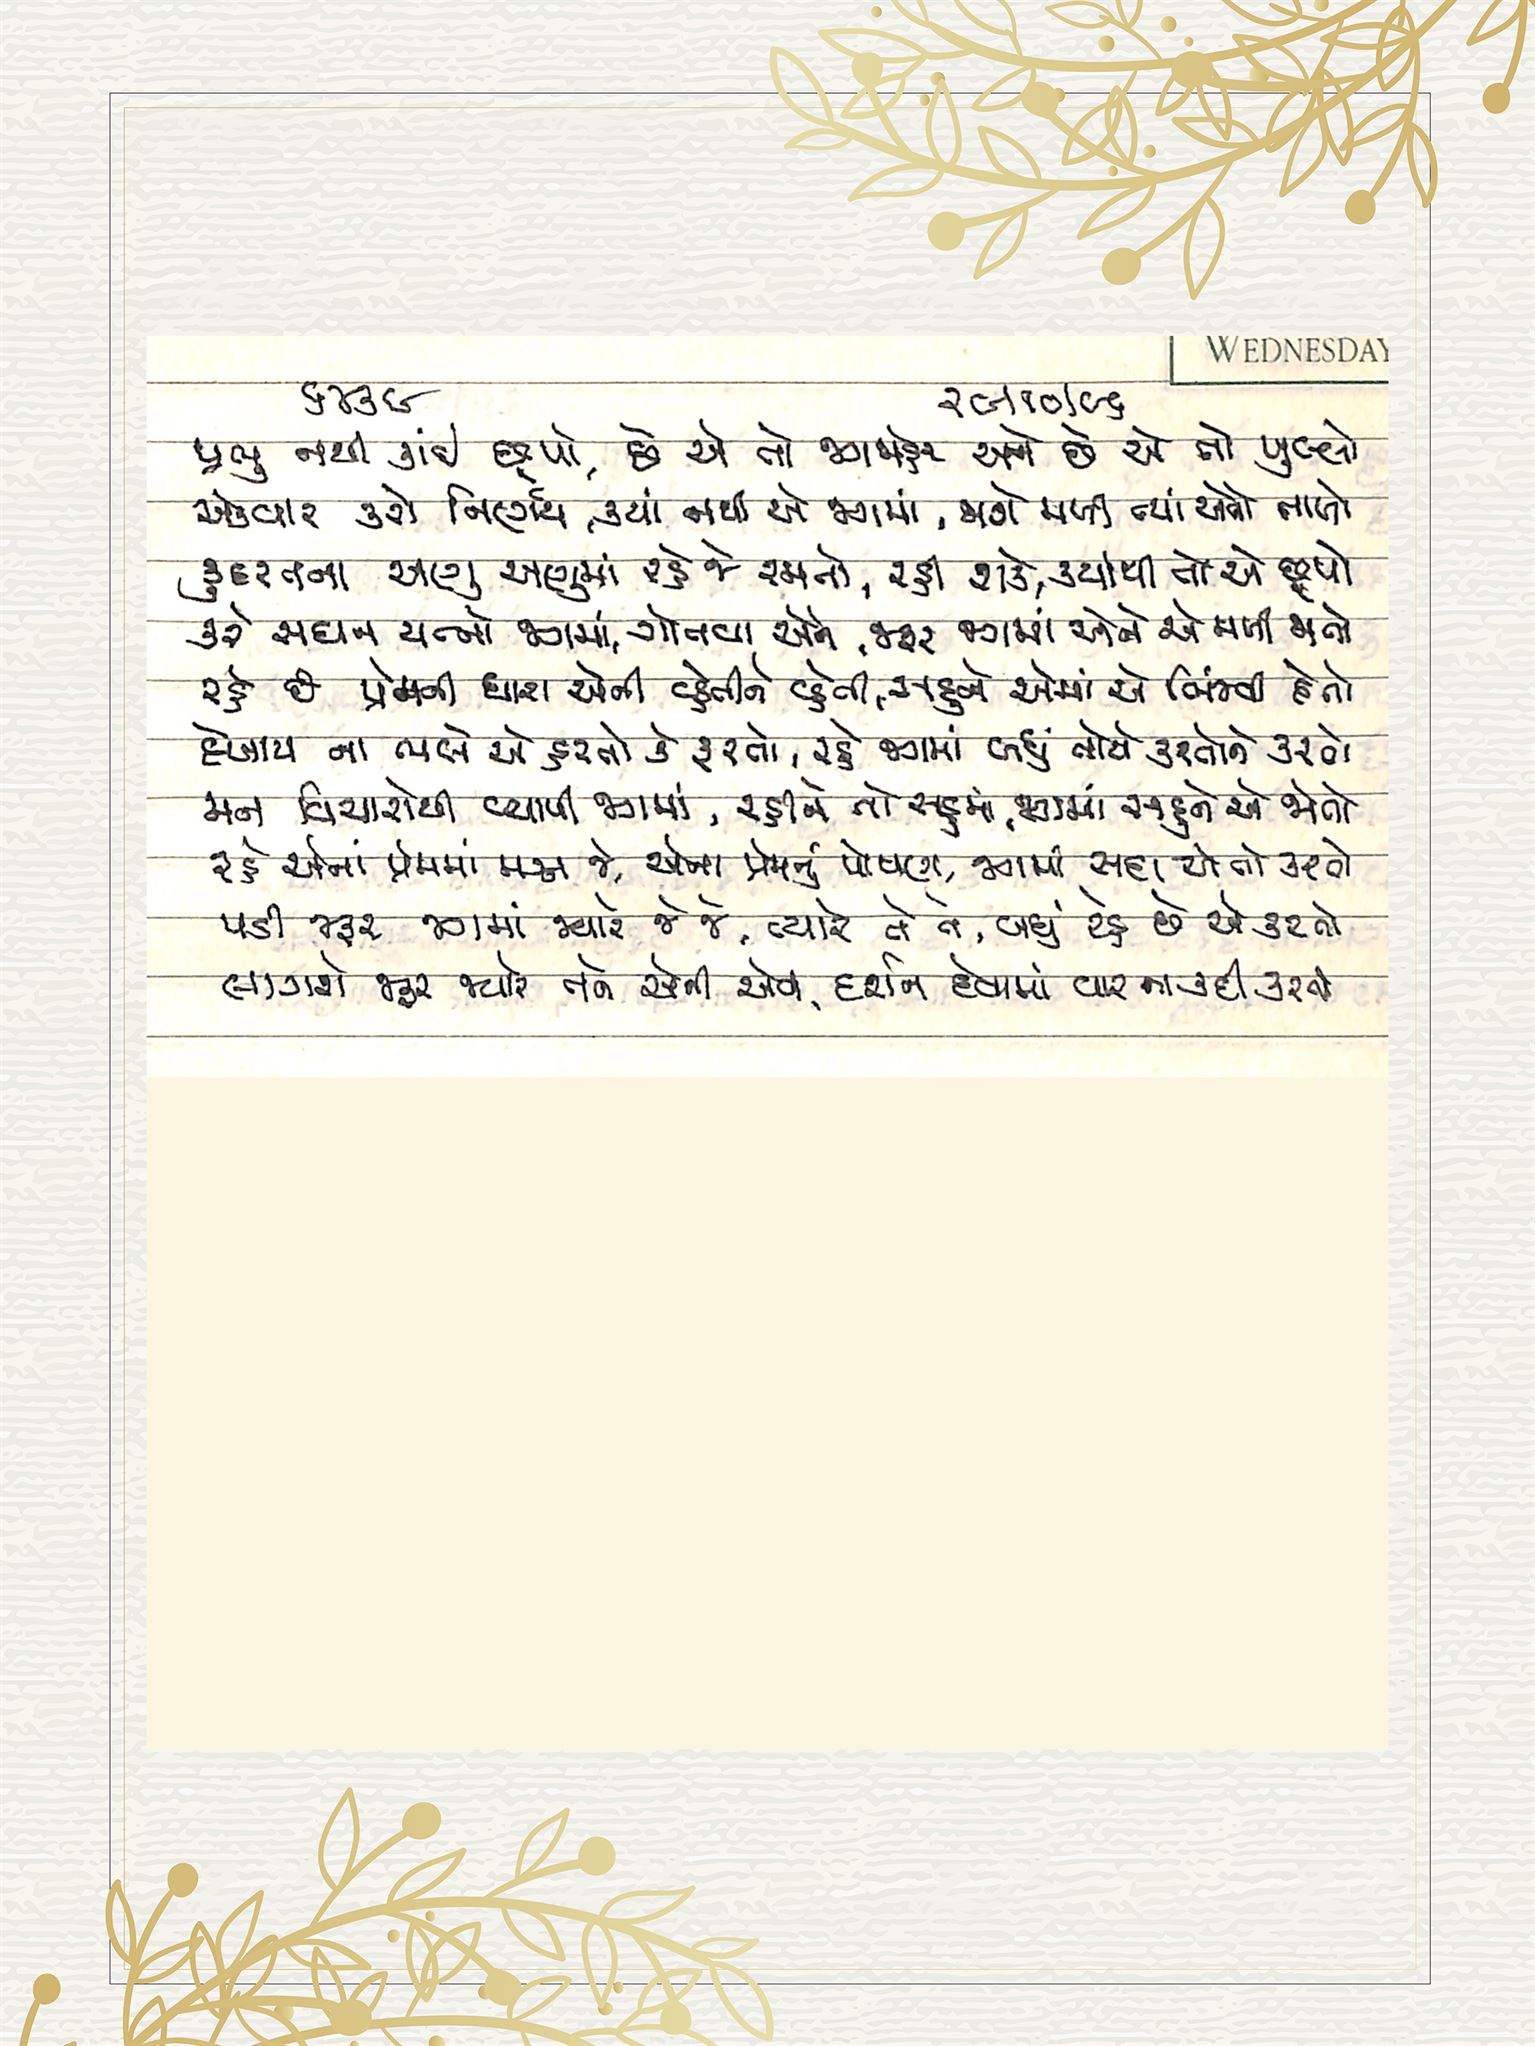 WEDNESDAY
૬૪૩૬ ૨૯/૧૦/૯૬
પ્રભુ નથી કાંઈ છૂપો, છે એ તો જગજાહેર અને છે એ તો ખુલ્લો
એકવાર કરો નિર્ણય, ક્યાં નથી એ જગમાં, જાશે મળી ત્યાં એનો તાળો
કુદરતના અણુ અણુમાં રહે જે રમતો, રહી શકે, ક્યાંથી તો એ છૂપો
કરે સઘન યત્નો જગમાં, ગોતવા એને, જરૂર જગમાં એને એ મળી જાતો
રહે છે પ્રેમની ધારા એની વ્હેતીને વ્હેતી, સહુને એમાં એ ભિંજવી દેતો
દેખાય ના ભલે એ હરતો કે ફરતો, રહે જગમાં બધું તોયે કરતોને કરતો
મન વિચારોથી વ્યાપી જગમાં, રહીને તો સહુમાં, જગમાં સહુને એ જોતો
રહે એનાં પ્રેમમાં મગ્ન જે, એના પ્રેમનું પોષણ, જગમાં સદા એ તો કરતો
પડી જરૂર જગમાં જ્યારે જે જે, ત્યારે તે તે, બધું રહે છે એ કરતો
લાગશે જરૂર જ્યારે તને એની એવી, દર્શન દેવામાં વાર ના કદી કરતો